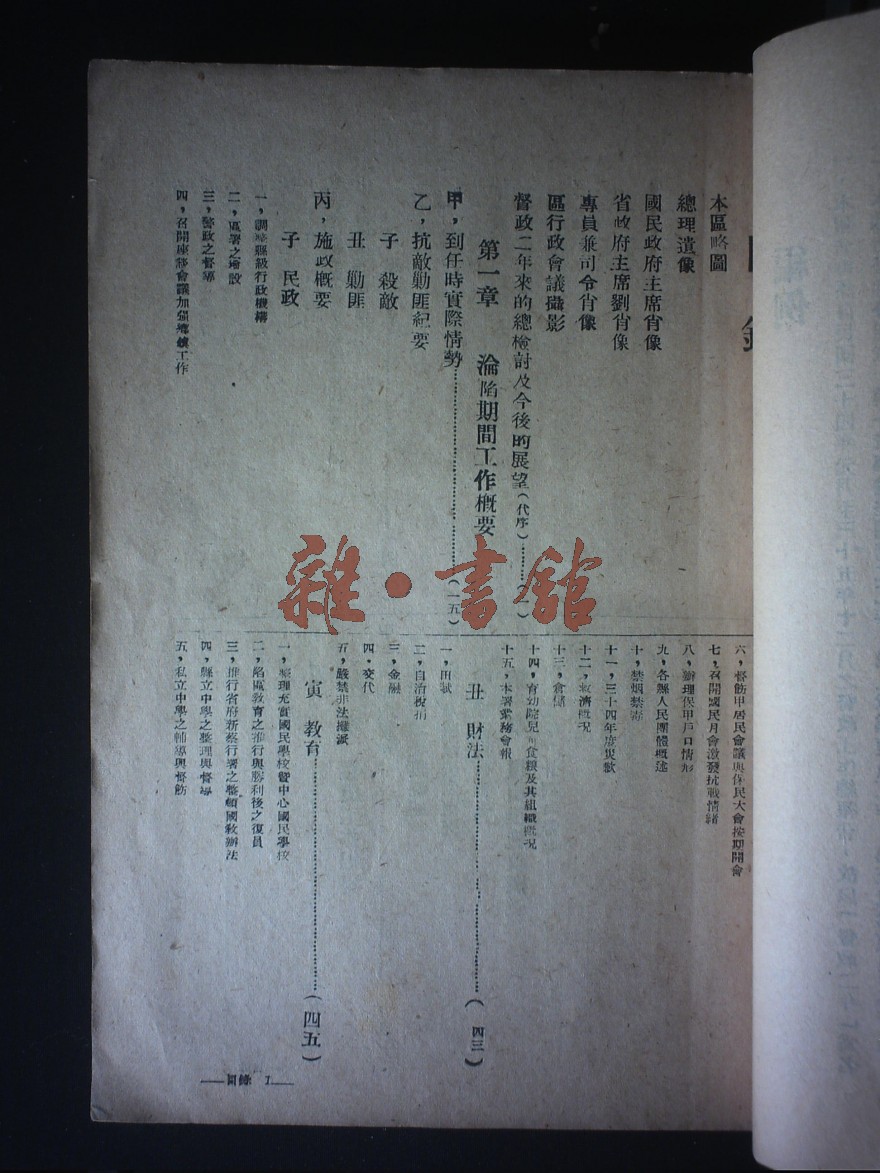 本區略圖
總理遺像
國民政府主席肖像
省政府主席劉肖像
專員兼司令肖像
區行政會議攝影
督政二年來的總檢討及今後的展望(代序)………(一)
第一章 淪陷期間工作概要
甲,到任時實際情勢………(一五)
乙,抗敵勦匪紀要
子 殺敵
丑 勦匪
丙,施政概要
子 民政
一,調整縣級行政機構
二,區署之增設
三,警政之督導
四,召開座談會議加强鄉鎮工作
六,督飭甲居民會議與保民大會按期開會
七,召開國民月會激發抗戰情緒
八,辦理保甲戶口情形
九,各縣人民團體概述
十,禁烟禁毒
十一,三十四年度災歉
十二,救濟概況
十三,倉儲
十四,育幼院兒童食糧及其組織概況
十五,本署業務會報
丑 財法………(四三)
一,田賦
二,自治稅捐
三,金融
四,交代
五,嚴禁非法攤派
寅 教育………(四五)
一,整理充實國民學校暨中心國民學校
二,陷區教育之推行與勝利後之復員
三,推行省府新蔡行署之整頓國教辦法
四,縣立中學之整理與督導
五,私立中學之輔導與督飭
目錄 1
雜·書館